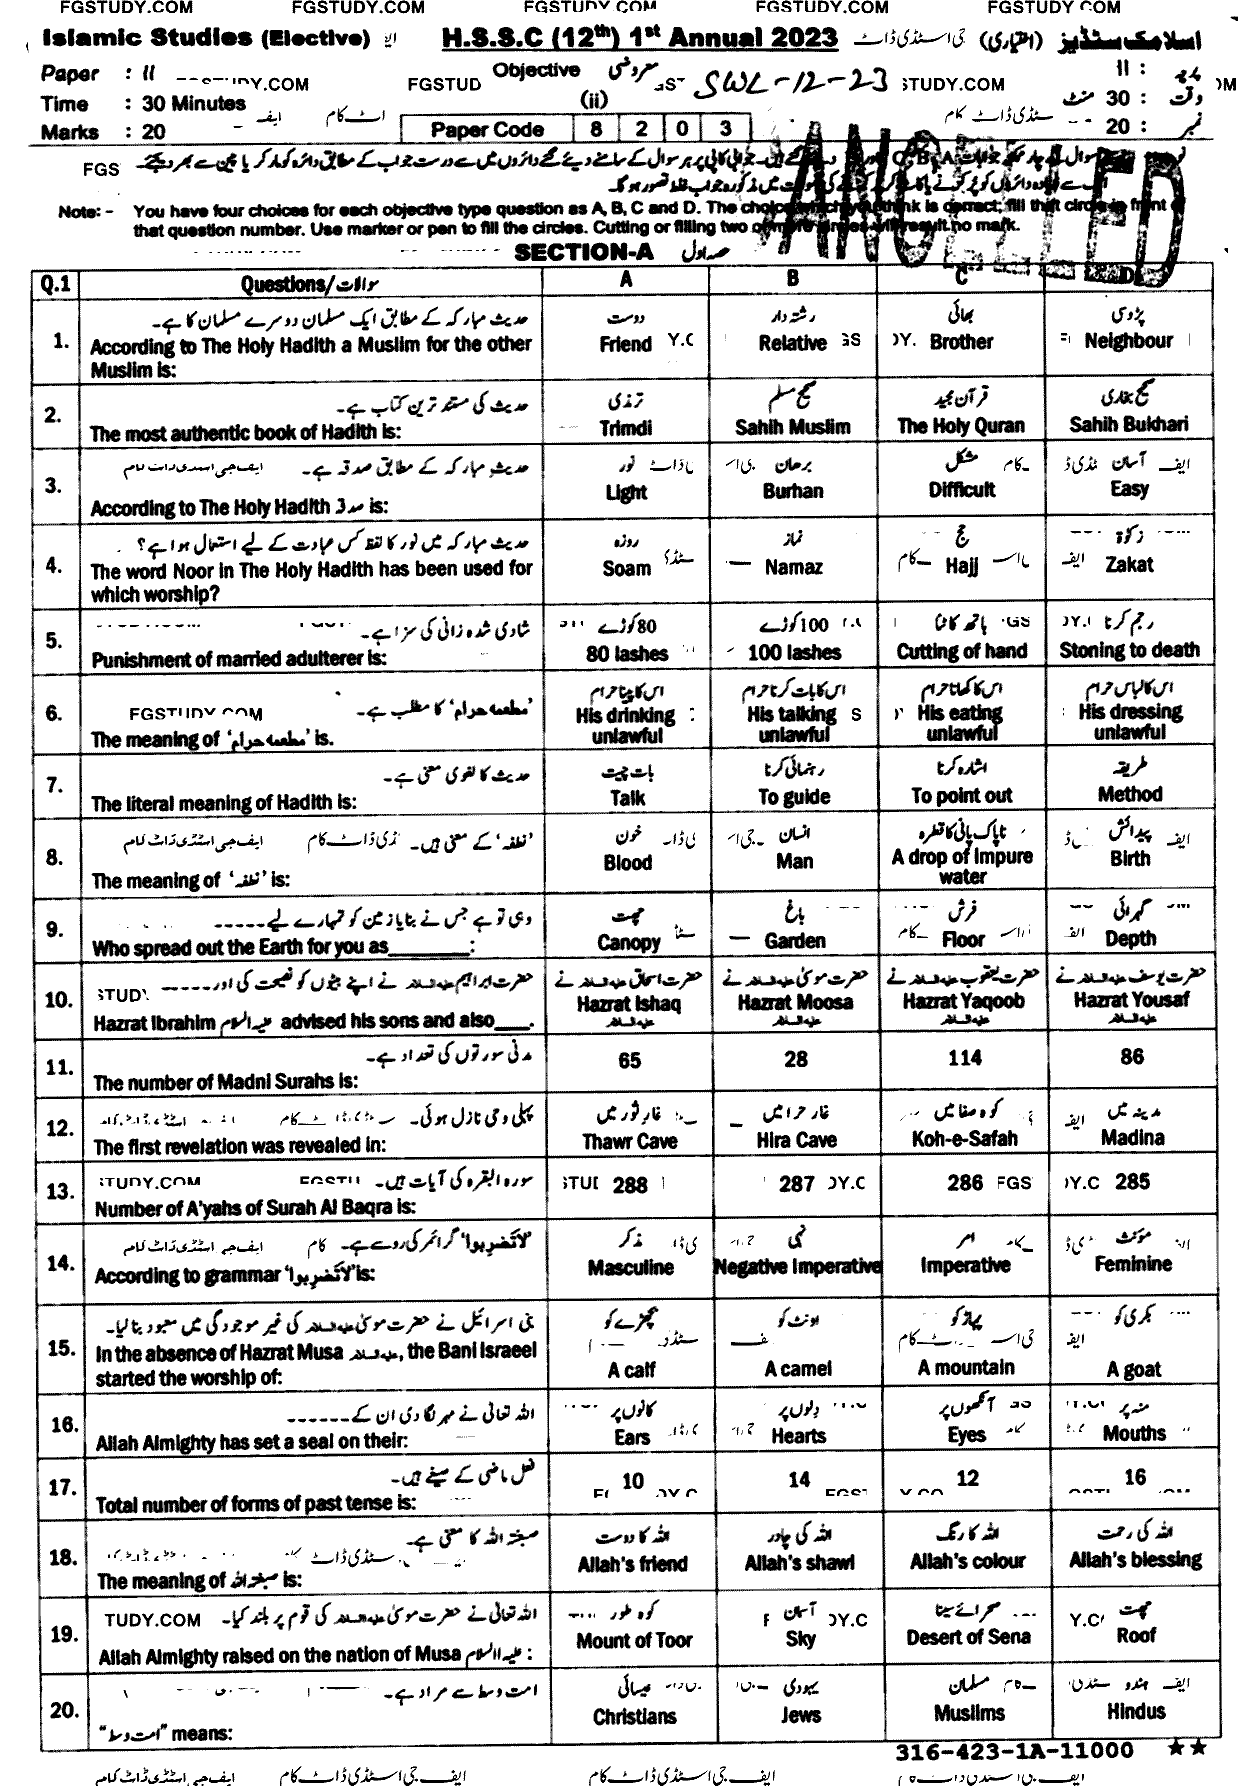 FGSTUDY.COM FGSTUDY.COM FGSTUDY.COM FGSTUDY.COM
Islamic Studies (Elective) H.S.S.C (12th) 1st Annual 2023 جی اسٹڈی ڈاٹ اسلامک سٹڈیز (اختیاری)
Paper : II Objective معروضی SWL-12-23 II : پرچہ
Time : 30 Minutes (ii) وقت : 30 منٹ
Marks : 20 Paper Code 8 2 0 3 نمبر : 20
CANCELLED
Note: - You have four choices for each objective type question as A, B, C and D. The choice which you think is correct; fill that circle in front of
that question number. Use marker or pen to fill the circles. Cutting or filling two or more circles will result no mark.
SECTION-A حصہ اول
Q.1 Questions/سوالات A B C D
1. حدیث مبارکہ کے مطابق ایک مسلمان دوسرے مسلمان کا ہے۔ دوست رشتہ دار بھائی پڑوسی
According to The Holy Hadith a Muslim for the other Friend Relative Brother Neighbour
Muslim is:
2. حدیث کی مستند ترین کتاب ہے۔ ترمذی صحیح مسلم قرآن مجید صحیح بخاری
The most authentic book of Hadith is: Trimdi Sahih Muslim The Holy Quran Sahih Bukhari
3. حدیث مبارکہ کے مطابق صدقہ ہے۔ نور برھان مشکل آسان
According to The Holy Hadith صدقہ is: Light Burhan Difficult Easy
4. حدیث مبارکہ میں نور کا لفظ کس عبادت کے لیے استعمال ہوا ہے؟ روزہ نماز حج زکوٰۃ
The word Noor in The Holy Hadith has been used for Soam Namaz Hajj Zakat
which worship?
5. شادی شدہ زانی کی سزا ہے۔ 80 کوڑے 100 کوڑے ہاتھ کاٹنا رجم کرنا
Punishment of married adulterer is: 80 lashes 100 lashes Cutting of hand Stoning to death
6. 'مطعمہ حرام' کا مطلب ہے۔ اس کا پینا حرام اس کا بات کرنا حرام اس کا کھانا حرام اس کا لباس حرام
FGSTUDY.COM His drinking His talking His eating His dressing
The meaning of 'مطعمہ حرام' is. unlawful unlawful unlawful unlawful
7. حدیث کا لغوی معنی ہے۔ بات چیت رہنمائی کرنا اشارہ کرنا طریقہ
The literal meaning of Hadith is: Talk To guide To point out Method
8. 'نطفہ' کے معنی ہیں۔ خون انسان ناپاک پانی کا قطرہ پیدائش
The meaning of 'نطفہ' is: Blood Man A drop of Impure water Birth
9. وہی تو ہے جس نے بنایا زمین کو تمہارے لیے------ چھت باغ فرش گہرائی
Who spread out the Earth for you as________: Canopy Garden Floor Depth
10. حضرت ابراہیم علیہ السلام نے اپنے بیٹوں کو نصیحت کی اور------ حضرت اسحاق علیہ السلام نے حضرت موسیٰ علیہ السلام نے حضرت یعقوب علیہ السلام نے حضرت یوسف علیہ السلام نے
Hazrat Ibrahim علیہ السلام advised his sons and also____. Hazrat Ishaq علیہ السلام Hazrat Moosa علیہ السلام Hazrat Yaqoob علیہ السلام Hazrat Yousaf علیہ السلام
11. مدنی سورتوں کی تعداد ہے۔ 65 28 114 86
The number of Madni Surahs is:
12. پہلی وحی نازل ہوئی۔ غار ثور میں غار حرا میں کوہ صفا میں مدینہ میں
The first revelation was revealed in: Thawr Cave Hira Cave Koh-e-Safah Madina
13. سورہ البقرہ کی آیات ہیں۔ 288 287 286 285
Number of A'yahs of Surah Al Baqra is:
14. 'لَاتَضْرِبُوا' گرائمر کی رو سے ہے۔ مذکر نہی امر مؤنث
According to grammar 'لَاتَضْرِبُوا' is: Masculine Negative Imperative Imperative Feminine
15. بنی اسرائیل نے حضرت موسیٰ علیہ السلام کی غیر موجودگی میں معبود بنا لیا۔ بچھڑے کو اونٹ کو پہاڑ کو بکری کو
In the absence of Hazrat Musa علیہ السلام, the Bani Israeel A calf A camel A mountain A goat
started the worship of:
16. اللہ تعالیٰ نے مہر لگا دی ان کے------ کانوں پر دلوں پر آنکھوں پر منہ پر
Allah Almighty has set a seal on their: Ears Hearts Eyes Mouths
17. فعل ماضی کے صیغے ہیں۔ 10 14 12 16
Total number of forms of past tense is:
18. صبغۃ اللہ کا معنی ہے۔ اللہ کا دوست اللہ کی چادر اللہ کا رنگ اللہ کی رحمت
The meaning of صبغۃ اللہ is: Allah's friend Allah's shawl Allah's colour Allah's blessing
19. اللہ تعالیٰ نے حضرت موسیٰ علیہ السلام کی قوم پر بلند کیا۔ کوہ طور آسمان صحرائے سینا چھت
Allah Almighty raised on the nation of Musa علیہ السلام : Mount of Toor Sky Desert of Sena Roof
20. امت وسط سے مراد ہے۔ عیسائی یہودی مسلمان ہندو
"امت وسط" means: Christians Jews Muslims Hindus
316-423-1A-11000 ★★
ایف جی اسٹڈی ڈاٹ کام ایف جی اسٹڈی ڈاٹ کام